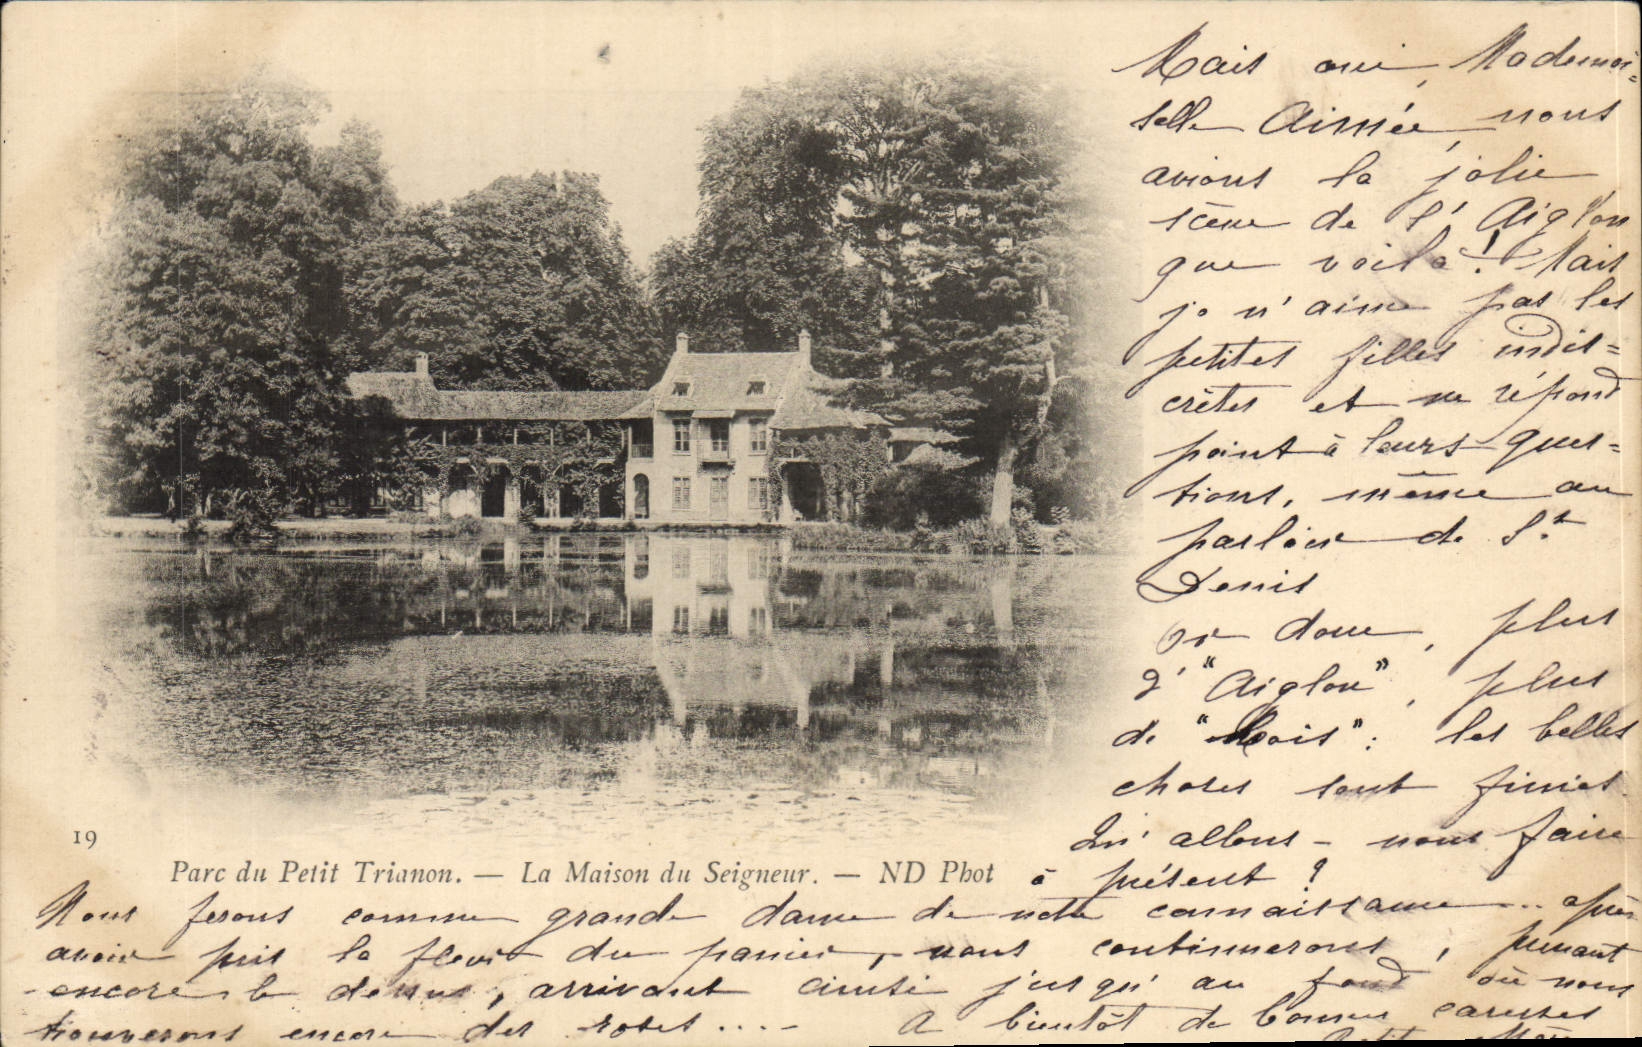 Mais oui, Mademoi=
selle Aimée, nous
avions la jolie
scène de l'Aiglon
que voilà! Mais
je n'aime pas les
petites filles indis=
crètes et ne répond
point à leurs ques=
tions, même au
parloir de St
Denis
Or donc, plus
d'"Aiglon", plus
de "Rois": les belles
choses sont finies.
Qu'allons-nous faire
à présent?
19
Parc du Petit Trianon. — La Maison du Seigneur. — ND Phot
Nous ferons comme grande dame de notre connaissance... après
avoir pris la fleur du panier, nous continuerons, prenant
encore le dessus, arrivant ainsi jusqu'au fond où nous
trouverons encore des roses.... A bientôt de bonnes caresses
Petit